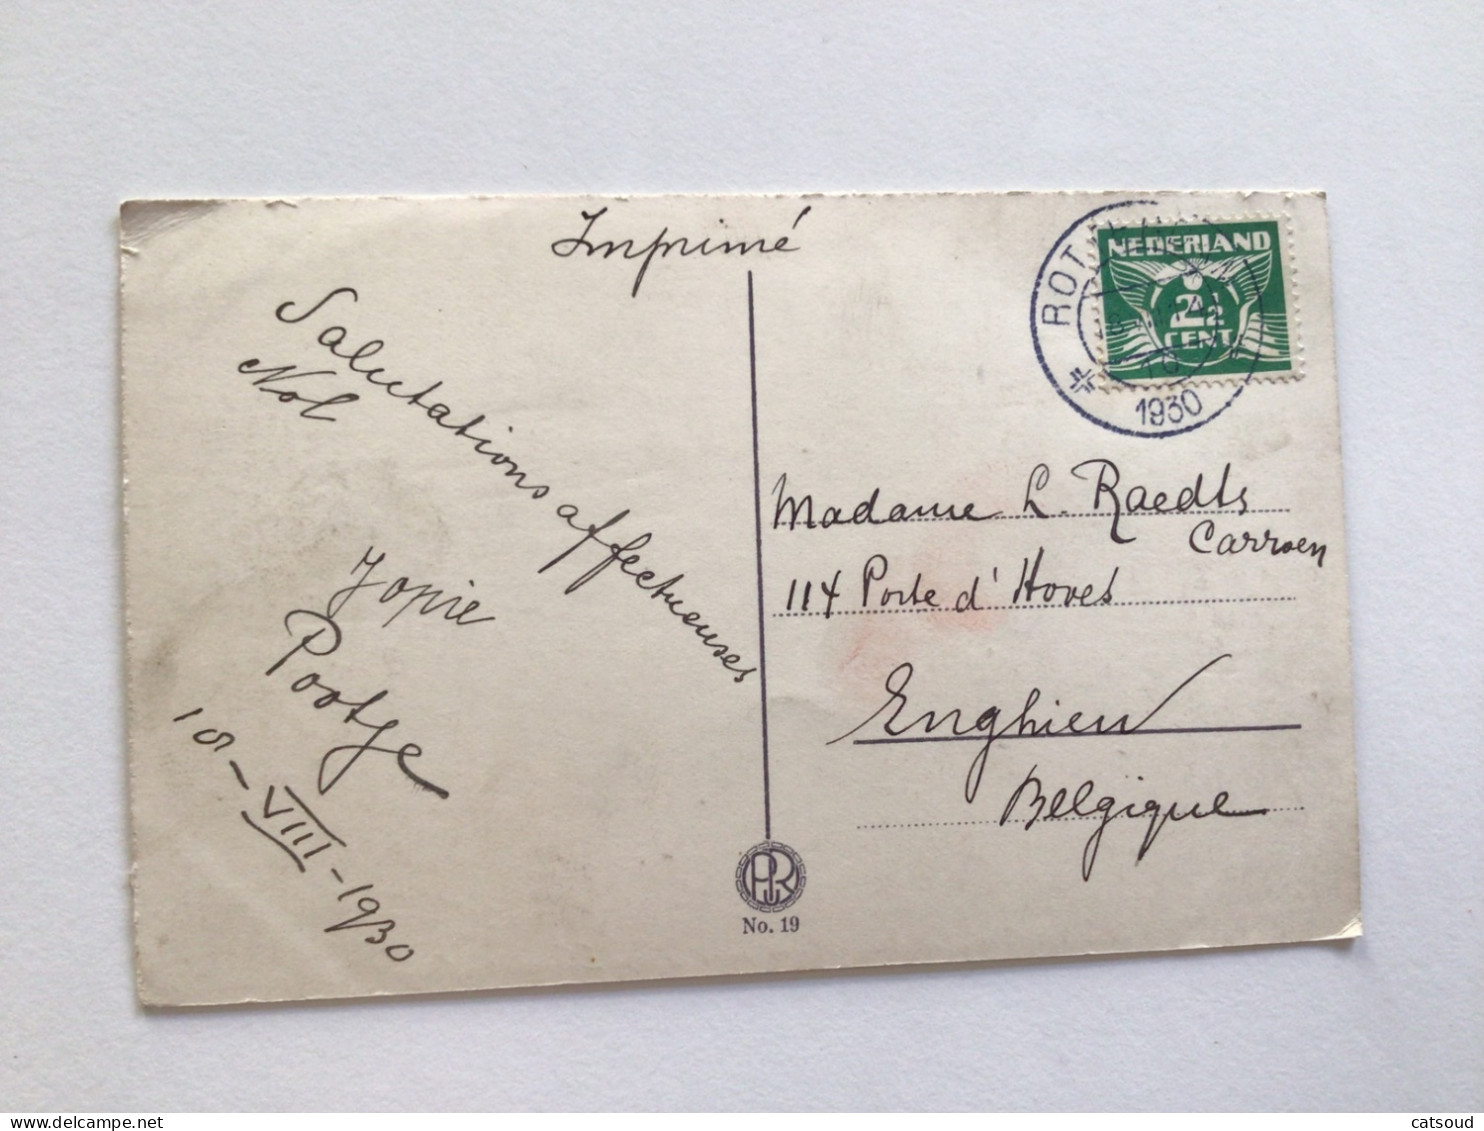 Imprimé
Salutations affectueuses
Nol
Jopie
Pootje
10-VIII-1930
NEDERLAND
2½
CENT
1930
Madame L. Raedts
Carroen
114 Porte d'Hoves
Enghien
Belgique
No. 19
catsoud